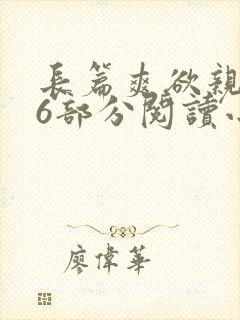 長篇爽欲親
6部分閱讀
廖偉華